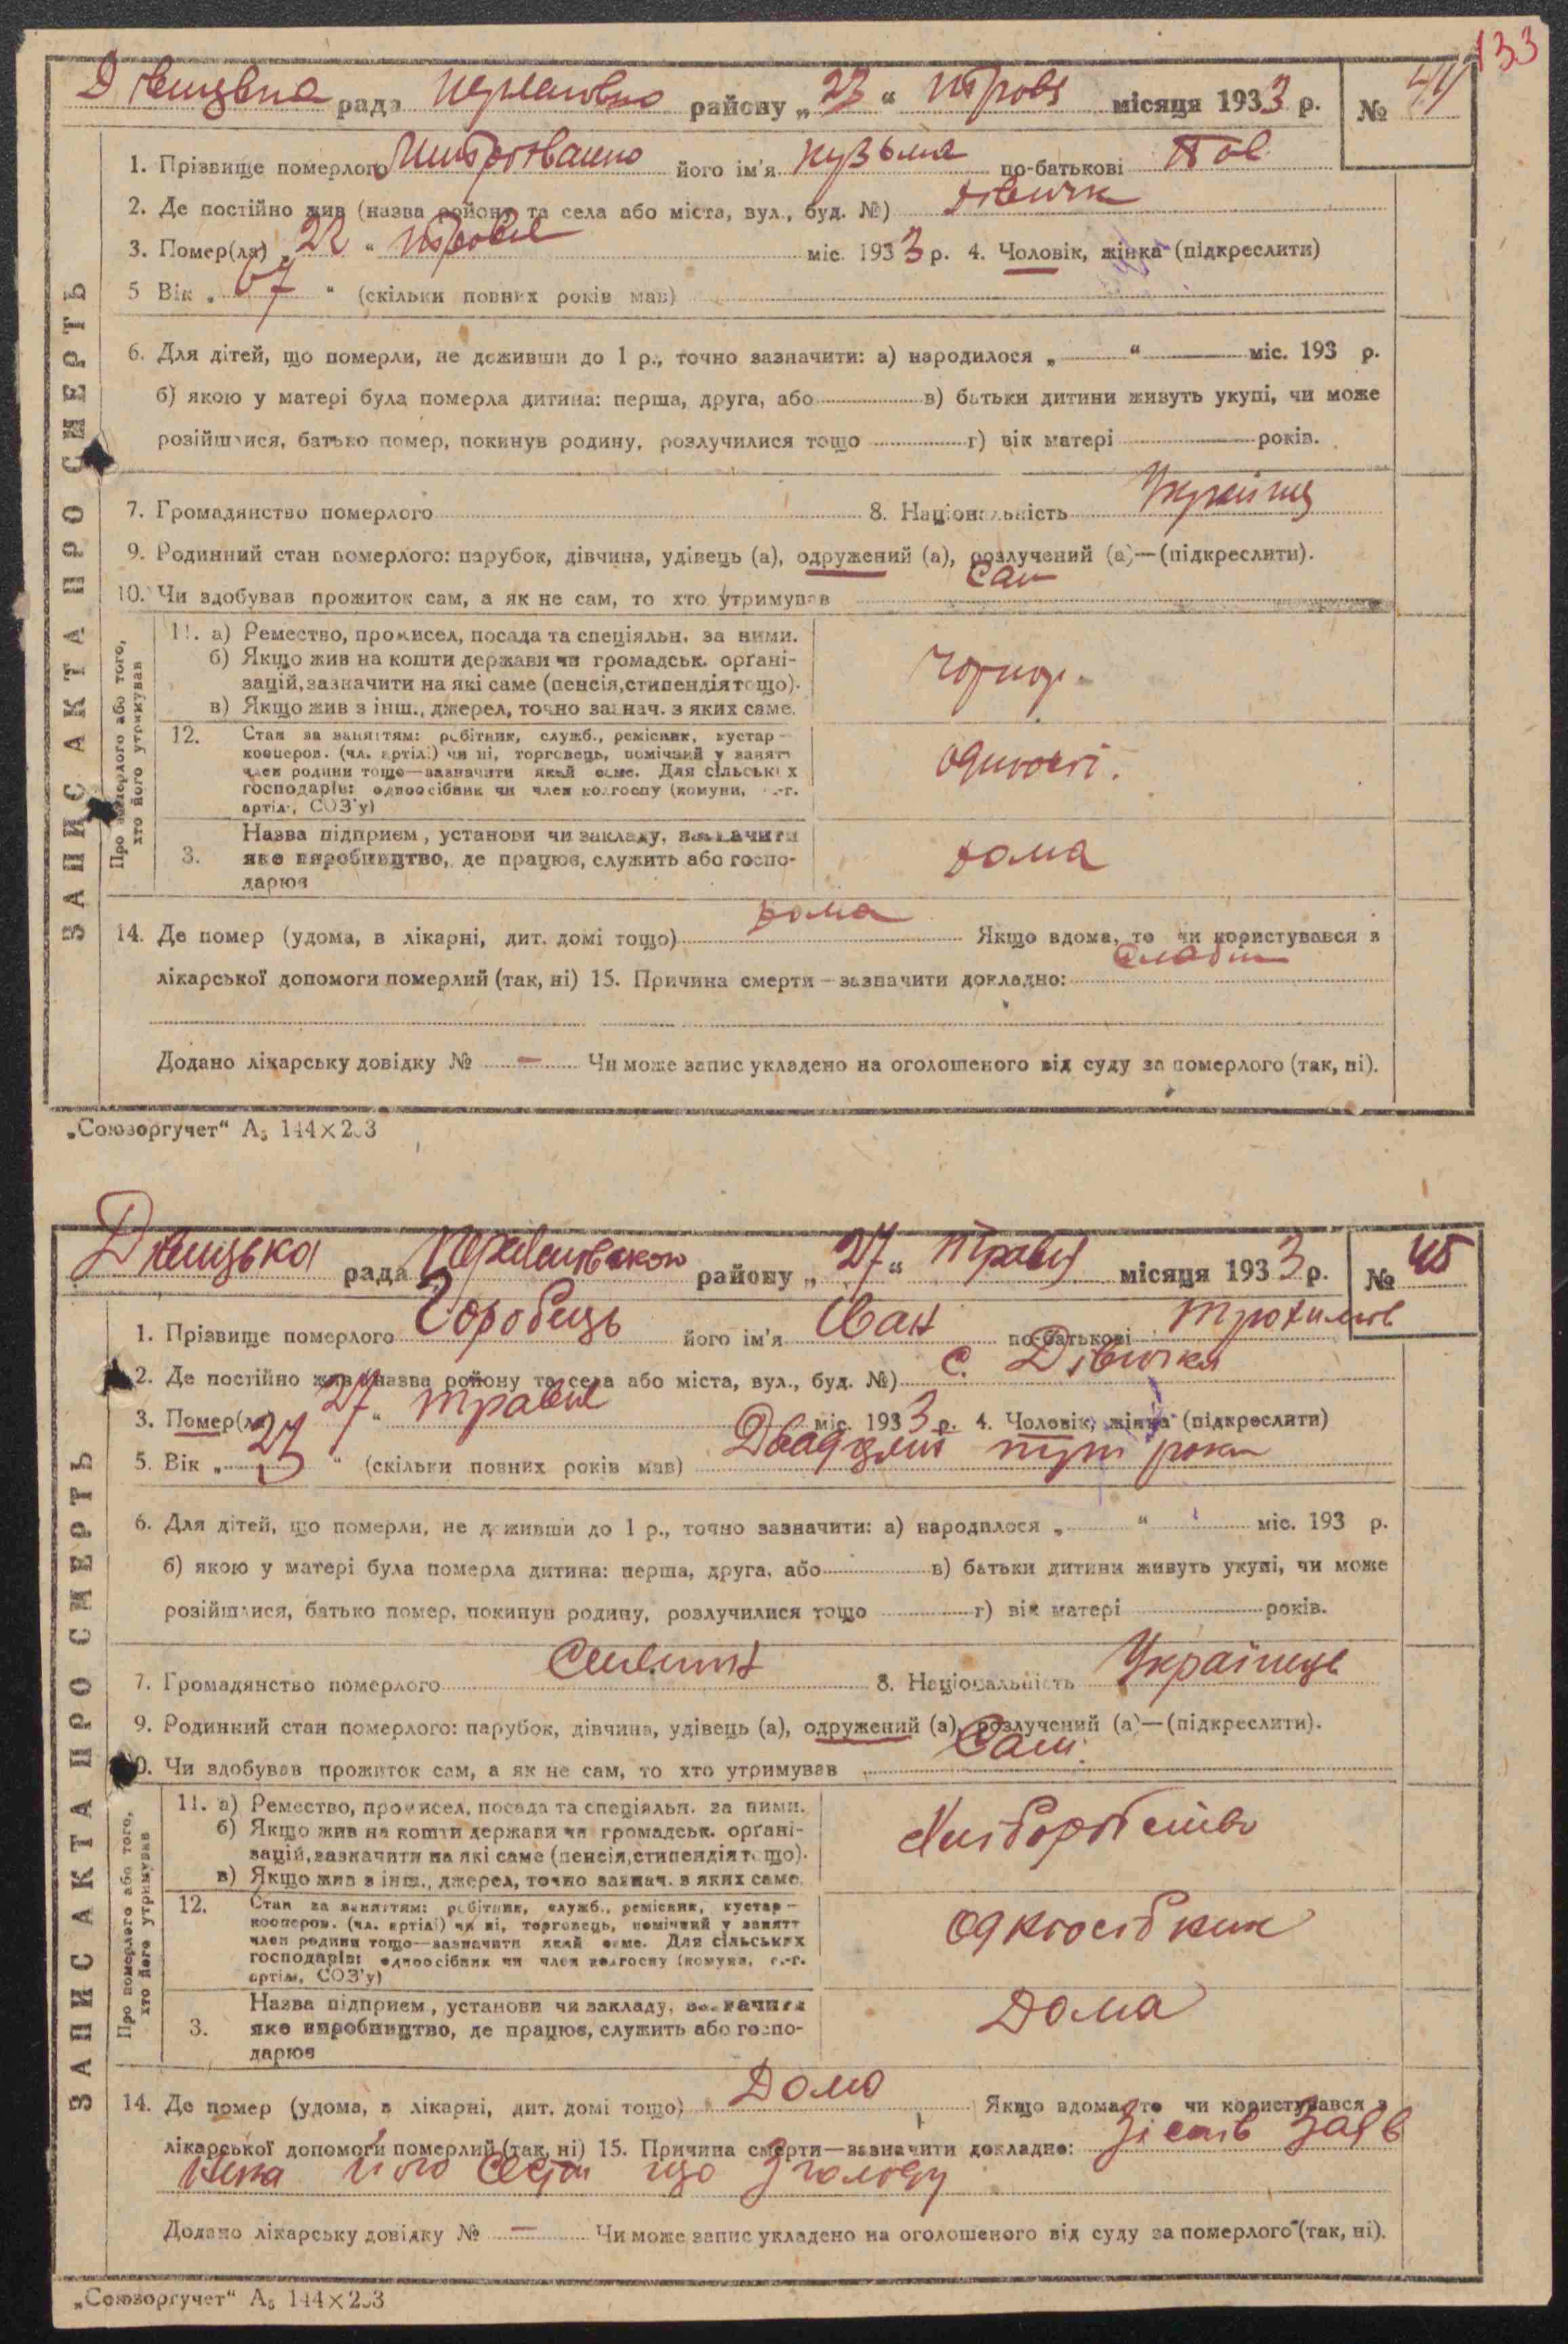 133
Дівицька рада району „27“ травя місяця 1933 р. № 44
1. Прізвище померлого його ім'я Кузьма по-батькові
2. Де постійно жив (назва району та села або міста, вул., буд. №) Дівичк
3. Помер(ла) „22“ травня міс. 1933 р. 4. Чоловік, жінка (підкреслити)
5 Вік „67“ (скільки повних років мав)
6. Для дітей, що померли, не доживши до 1 р., точно зазначити: а) народилося „ “ міс. 193 р.
б) якою у матері була померла дитина: перша, друга, або в) батьки дитини живуть укупі, чи може
розійшлися, батько помер, покинув родину, розлучилися тощо г) вік матері років.
7. Громадянство померлого 8. Національність Українц
9. Родинний стан померлого: парубок, дівчина, удівець (а), одружений (а), розлучений (а)—(підкреслити).
10. Чи здобував прожиток сам, а як не сам, то хто утримував Сам
ЗАПИС АКТА ПРО СМЕРТЬ
Про померлого або того, хто його утримував
11. а) Ремество, промисел, посада та спеціяльн. за ними.
б) Якщо жив на кошти держави чи громадськ. орґані-
зацій, зазначити на які саме (пенсія, стипендія тощо).
в) Якщо жив з інш., джерел, точно зазнач. з яких саме.
12. Стан за заняттям: робітник, служб., ремісник, кустар-
кооперов. (чл. артілі) чи ні, торговець, помічний у занятт
член родини тощо—зазначити який саме. Для сільських
господарів: одноосібник чи член колгоспу (комуни, с.-г.
артілі, СОЗ'у)
3. Назва підприєм., установи чи закладу, зазначити
яке виробництво, де працює, служить або госпо-
дарює
дома
14. Де помер (удома, в лікарні, дит. домі тощо) дома Якщо вдома, то чи користувався з
лікарської допомоги померлий (так, ні) 15. Причина смерти—зазначити докладно:
Додано лікарську довідку № — Чи може запис укладено на оголошеного від суду за померлого (так, ні).
„Союзоргучет“ А₅ 144×203
Дівицька рада району „27“ травя місяця 1933 р. № 45
1. Прізвище померлого Горобець його ім'я Іван по-батькові Трохимов
2. Де постійно жив (назва району та села або міста, вул., буд. №) с. Дівичка
3. Помер(ла) 27 “ травня міс. 1933 р. 4. Чоловік, жінка (підкреслити)
5. Вік „25“ (скільки повних років мав) Двадцять роки
6. Для дітей, що померли, не доживши до 1 р., точно зазначити: а) народилося „ “ міс. 193 р.
б) якою у матері була померла дитина: перша, друга, або в) батьки дитини живуть укупі, чи може
розійшлися, батько помер, покинув родину, розлучилися тощо г) вік матері років.
7. Громадянство померлого 8. Національність Українець
9. Родинний стан померлого: парубок, дівчина, удівець (а), одружений (а), розлучений (а)—(підкреслити).
10. Чи здобував прожиток сам, а як не сам, то хто утримував Сам.
ЗАПИС АКТА ПРО СМЕРТЬ
Про померлого або того, хто його утримував
11. а) Ремество, промисел, посада та спеціяльн. за ними.
б) Якщо жив на кошти держави чи громадськ. орґані-
зацій, зазначити на які саме (пенсія, стипендія тощо).
в) Якщо жив з інш., джерел, точно зазнач. з яких саме.
Хліборобство
12. Стан за заняттям: робітник, служб., ремісник, кустар-
кооперов. (чл. артілі) чи ні, торговець, помічний у занятт
член родини тощо—зазначити який саме. Для сільських
господарів: одноосібник чи член колгоспу (комуни, с.-г.
артілі, СОЗ'у)
одноосібник
3. Назва підприєм., установи чи закладу, зазначити
яке виробництво, де працює, служить або госпо-
дарює
Дома
14. Де помер (удома, в лікарні, дит. домі тощо) Дома Якщо вдома, то чи користувався з
лікарської допомоги померлий (так, ні) 15. Причина смерти—зазначити докладно: Зі слів заяв
його що з голоду
Додано лікарську довідку № — Чи може запис укладено на оголошеного від суду за померлого (так, ні).
„Союзоргучет“ А₅ 144×203